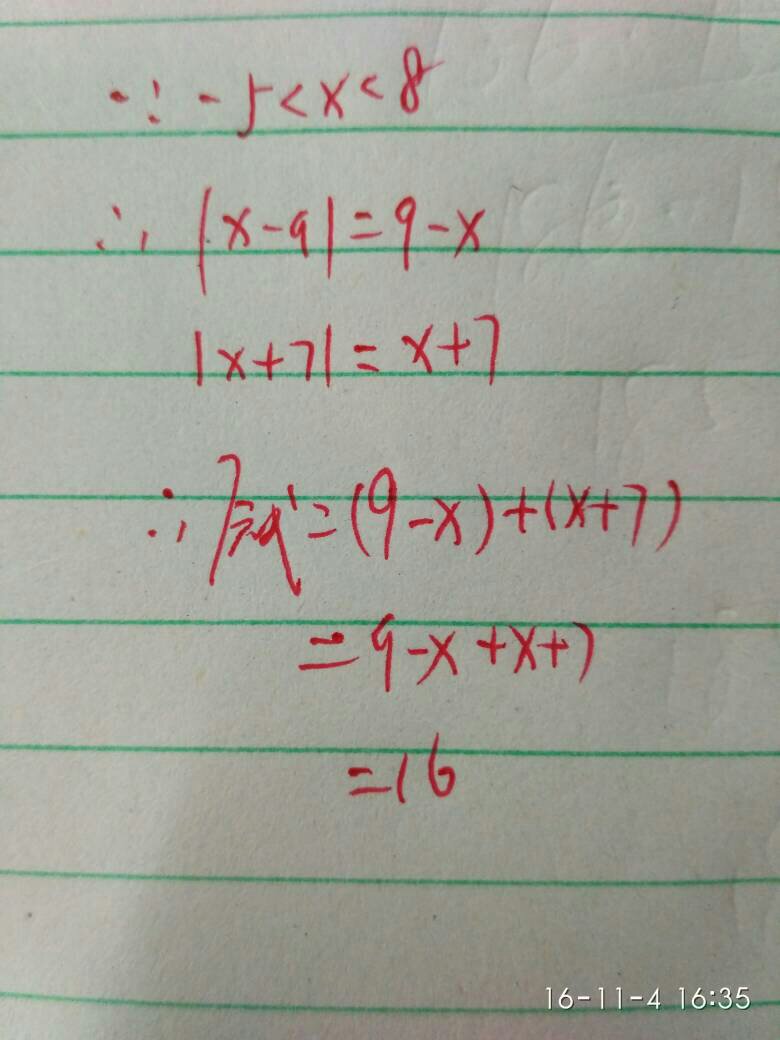 ∵ -5<x<8
∴ |x-9|=9-x
|x+7|=x+7
∴ 原式=(9-x)+(x+7)
=9-x+x+7
=16
16-11-4 16:35